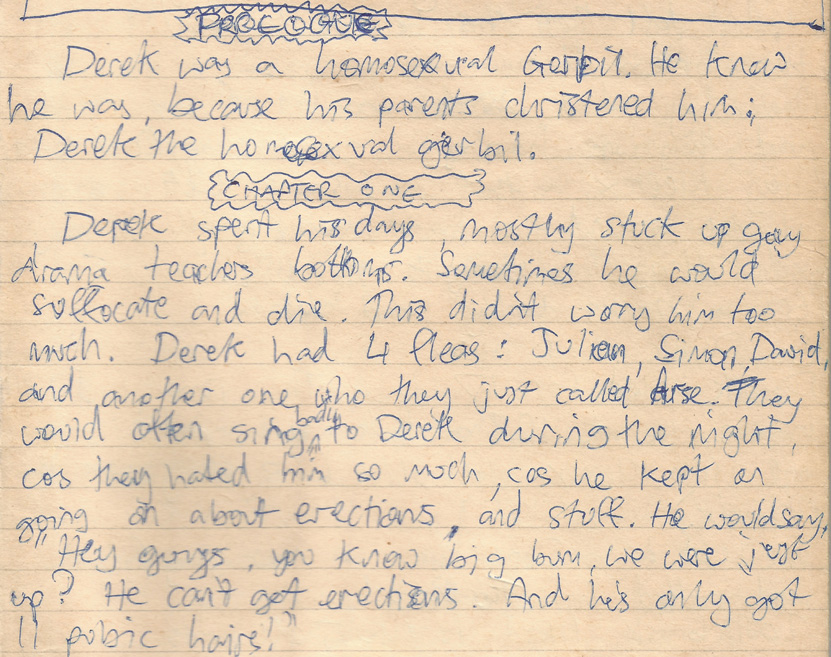 PROLOGUE
Derek was a homosexual Gerbil. He knew
he was, because his parents christened him;
Derek the homosexual gerbil.
CHAPTER ONE
Derek spent his days, mostly stuck up gay
drama teachers bottoms. Sometimes he would
suffocate and die. This didn't worry him too
much. Derek had 4 fleas: Julian, Simon, David,
and another one who they just called Arse. They
would often sing badly to Derek during the night,
cos they hated him so much, cos he kept on
going on about erections, and stuff. He would say,
"Hey guys, you know big bum, we were just
up? He can't get erections. And he's only got
11 pubic hairs!"